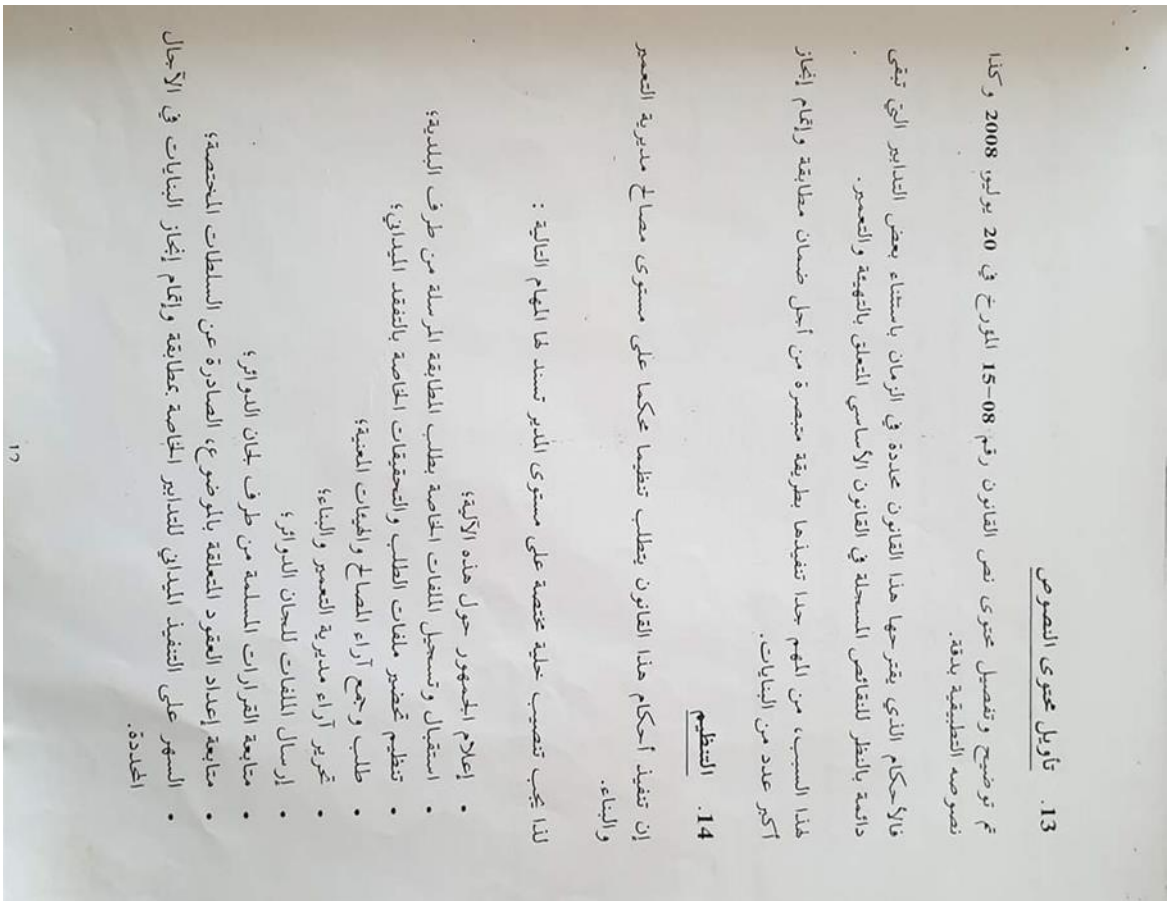 13. تأويل محتوى النصوص
تم توضيح وتفصيل محتوى نص القانون رقم 08-15 المؤرخ في 20 يوليو 2008 وكذا
نصوصه التطبيقية بدقة.
فالأحكام الذي يقترحها هذا القانون محددة في الزمان باستثناء بعض التدابير التي تبقى
دائمة بالنظر للنقائص المسجلة في القانون الأساسي المتعلق بالتهيئة والتعمير.
لهذا السبب، من المهم جدا تنفيذها بطريقة متبصرة من أجل ضمان مطابقة وإتمام إنجاز
أكبر عدد من البنايات.
14. التنظيم
إن تنفيذ أحكام هذا القانون يتطلب تنظيما محكما على مستوى مصالح مديرية التعمير
والبناء.
لذا يجب تنصيب خلية مختصة على مستوى المدير تسند لها المهام التالية :
• إعلام الجمهور حول هذه الآلية؛
• استقبال وتسجيل الملفات الخاصة بطلب المطابقة المرسلة من طرف البلدية؛
• تنظيم تحضير ملفات الطلب والتحقيقات الخاصة بالتفقد الميداني؛
• طلب وجمع آراء المصالح والهيئات المعنية؛
• تحرير آراء مديرية التعمير والبناء؛
• إرسال الملفات للجان الدوائر؛
• متابعة القرارات المسلمة من طرف لجان الدوائر؛
• متابعة إعداد العقود المتعلقة بالموضوع، الصادرة عن السلطات المختصة؛
• السهر على التنفيذ الميداني للتدابير الخاصة بمطابقة وإتمام إنجاز البنايات في الآجال
المحددة.